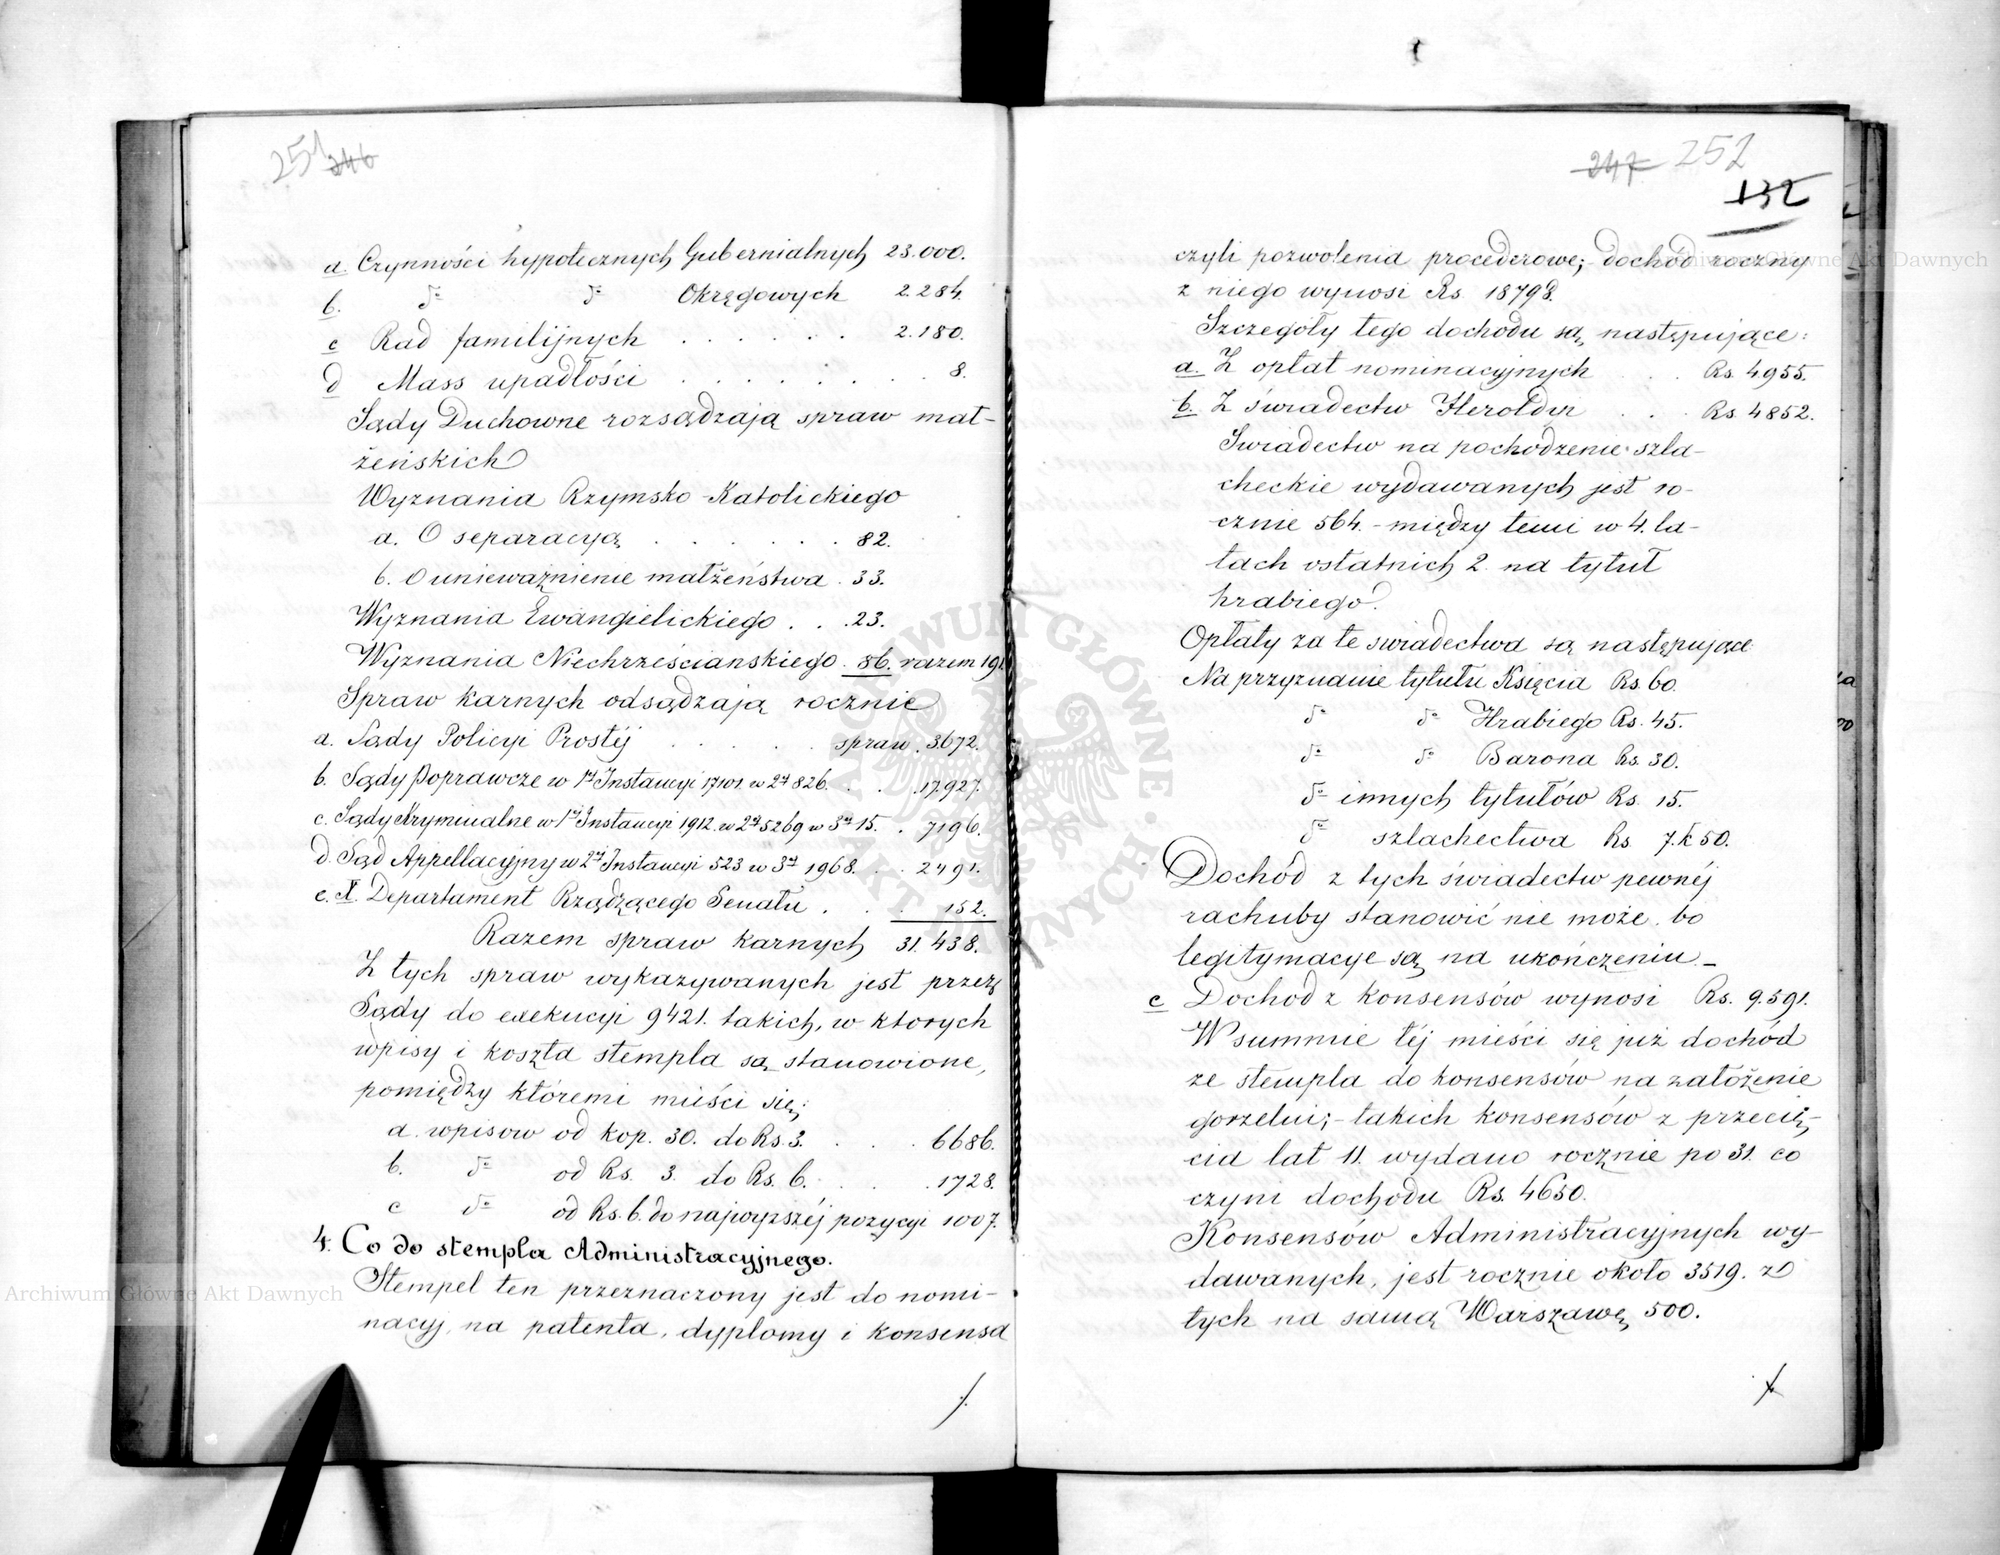 251 246
a Czynności hypotecznych Gubernialnych 23.000.
b. do do Okręgowych 2.284.
c Rad familijnych . . . . . . 2.180.
d Mass upadłości . . . . . . . . 8.
Sądy Duchowne rozsądzają spraw mał-
żeńskich
Wyznania Rzymsko-Katolickiego
a. O separacyą . . . . . . 82.
b. O unieważnienie małżeństwa . 33.
Wyznania Ewangielickiego . . . 23.
Wyznania Niechrześcianskiego . 86. razem 191.
Spraw karnych odsądzają rocznie
a. Sądy Policyi Prostéj . . . . . spraw . 3672.
b. Sądy Poprawcze w 1éj Instancyi 17101. w 2éj 826. . . . 17.927.
c. Sądy Kryminalne w 1éj Instancyi 1912. w 2éj 5269 w 3éj 15. . 7196.
d. Sąd Appellacyjny w 2éj Instancyi 523 w 3éj 1968. . . 2491.
e. X. Departament Rządzącego Senatu . . . 152.
Razem spraw karnych 31.438.
Z tych spraw wykazywanych jest przez
Sądy do exekucyi 9421. takich, w ktorych
wpisy i koszta stempla są stanowione,
pomiędzy któremi mieści się;
a. wpisow od kop. 30. do Rs. 3. . . . 6686.
b. do od Rs. 3. do Rs. 6. . . . 1728.
c do od Rs. 6. do najwyższéj pozycyi 1007.
4. Co do stempla Administracyjnego.
Stempel ten przeznaczony jest do nomi-
nacyj, na patenta, dyplomy i konsensa
/.
247 252
132
czyli pozwolenia procederowe; dochód roczny
z niego wynosi Rs 18798.
Szczegóły tego dochodu są następujące:
a. Z opłat nominacyjnych . . Rs. 4955.
b. Z świadectw Herołdyi . . . Rs 4852.
Swiadectw na pochodzenie szla-
checkie wydawanych jest ro-
cznie 564. - między temi w 4. la-
tach ostatnich 2. na tytuł
hrabiego.
Opłaty za te swiadectwa są następujące
Na przyznanie tytułu Księcia Rs. 60.
do do Hrabiego Rs. 45.
do do Barona Rs. 30.
do innych tytułów Rs. 15.
do szlachectwa Rs 7. k 50.
Dochód z tych świadectw pewnéj
rachuby stanowić nie może. bo
legitymacye są na ukończeniu. -
c Dochod z konsensów wynosi Rs. 9.591.
W summie téj mieści się już dochód
ze stempla do konsensów na założenie
gorzelni; - takich konsensów z przecię-
cia lat 11. wydano rocznie po 31. co
czyni dochodu Rs. 4650.
Konsensów Administracyjnych wy-
dawanych, jest rocznie około 3519. z
tych na samą Warszawę 500.
Archiwum Główne Akt Dawnych
Archiwum Główne Akt Dawnych
ARCHIWUM GŁÓWNE AKT DAWNYCH